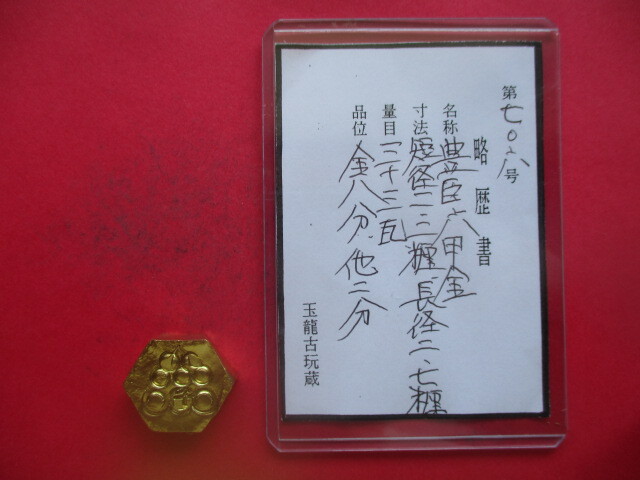 第七〇二八号
略歴書
名称 豊臣六甲金
寸法 短径二.二糎、長径二.七糎
量目 三十三瓦
品位 金八分、他二分
玉龍古玩蔵